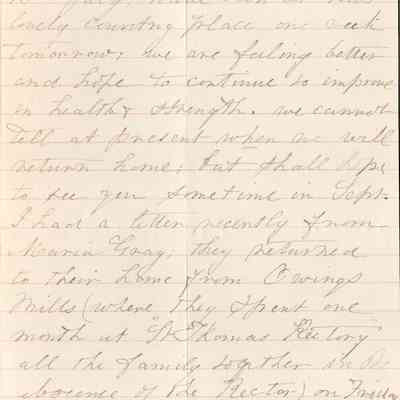 lovely country place one week
tomorrow; we are feeling better
and hope to continue to improve
in health & strength. we cannot
tell at present when we will
return home; but shall hope
to see you sometime in Sept.
I had a letter recently from
Maria Gray; they returned
to their home from Owings
Mills (where they spent one
month at "St Thomas Rectory"
all the family together in the
absence of the Rector) on Friday